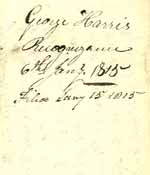 George Harris
Recognizance
6th Jany. 1815
Filed Jany 15 1815